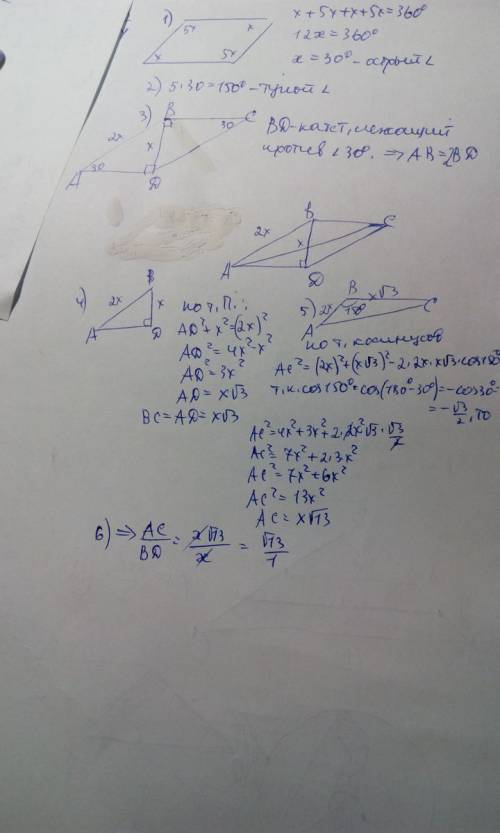 1) 5x x x 5x
x + 5x + x + 5x = 360°
12x = 360°
x = 30° - острый ∠
2) 5·30 = 150° - тупой ∠
3) A B C D 2x x 30 30
BD - катет, лежащий
против ∠30°. ⇒ AB = 2BD
A B C D 2x x
4) A B D 2x x
по т. П.:
AD² + x² = (2x)²
AD² = 4x² - x²
AD² = 3x²
AD = x√3
BC = AD = x√3
5) A B C 2x x√3 150°
по т. косинусов
AC² = (2x)² + (x√3)² - 2·2x·x√3·cos150°
т.к. cos150° = cos(180° - 30°) = -cos30°
= -√3/2, то
AC² = 4x² + 3x² + 2·2x²√3·√3/2
AC² = 7x² + 2·3x²
AC² = 7x² + 6x²
AC² = 13x²
AC = x√13
6) ⇒ AC/BD = x√13/x = √13/1